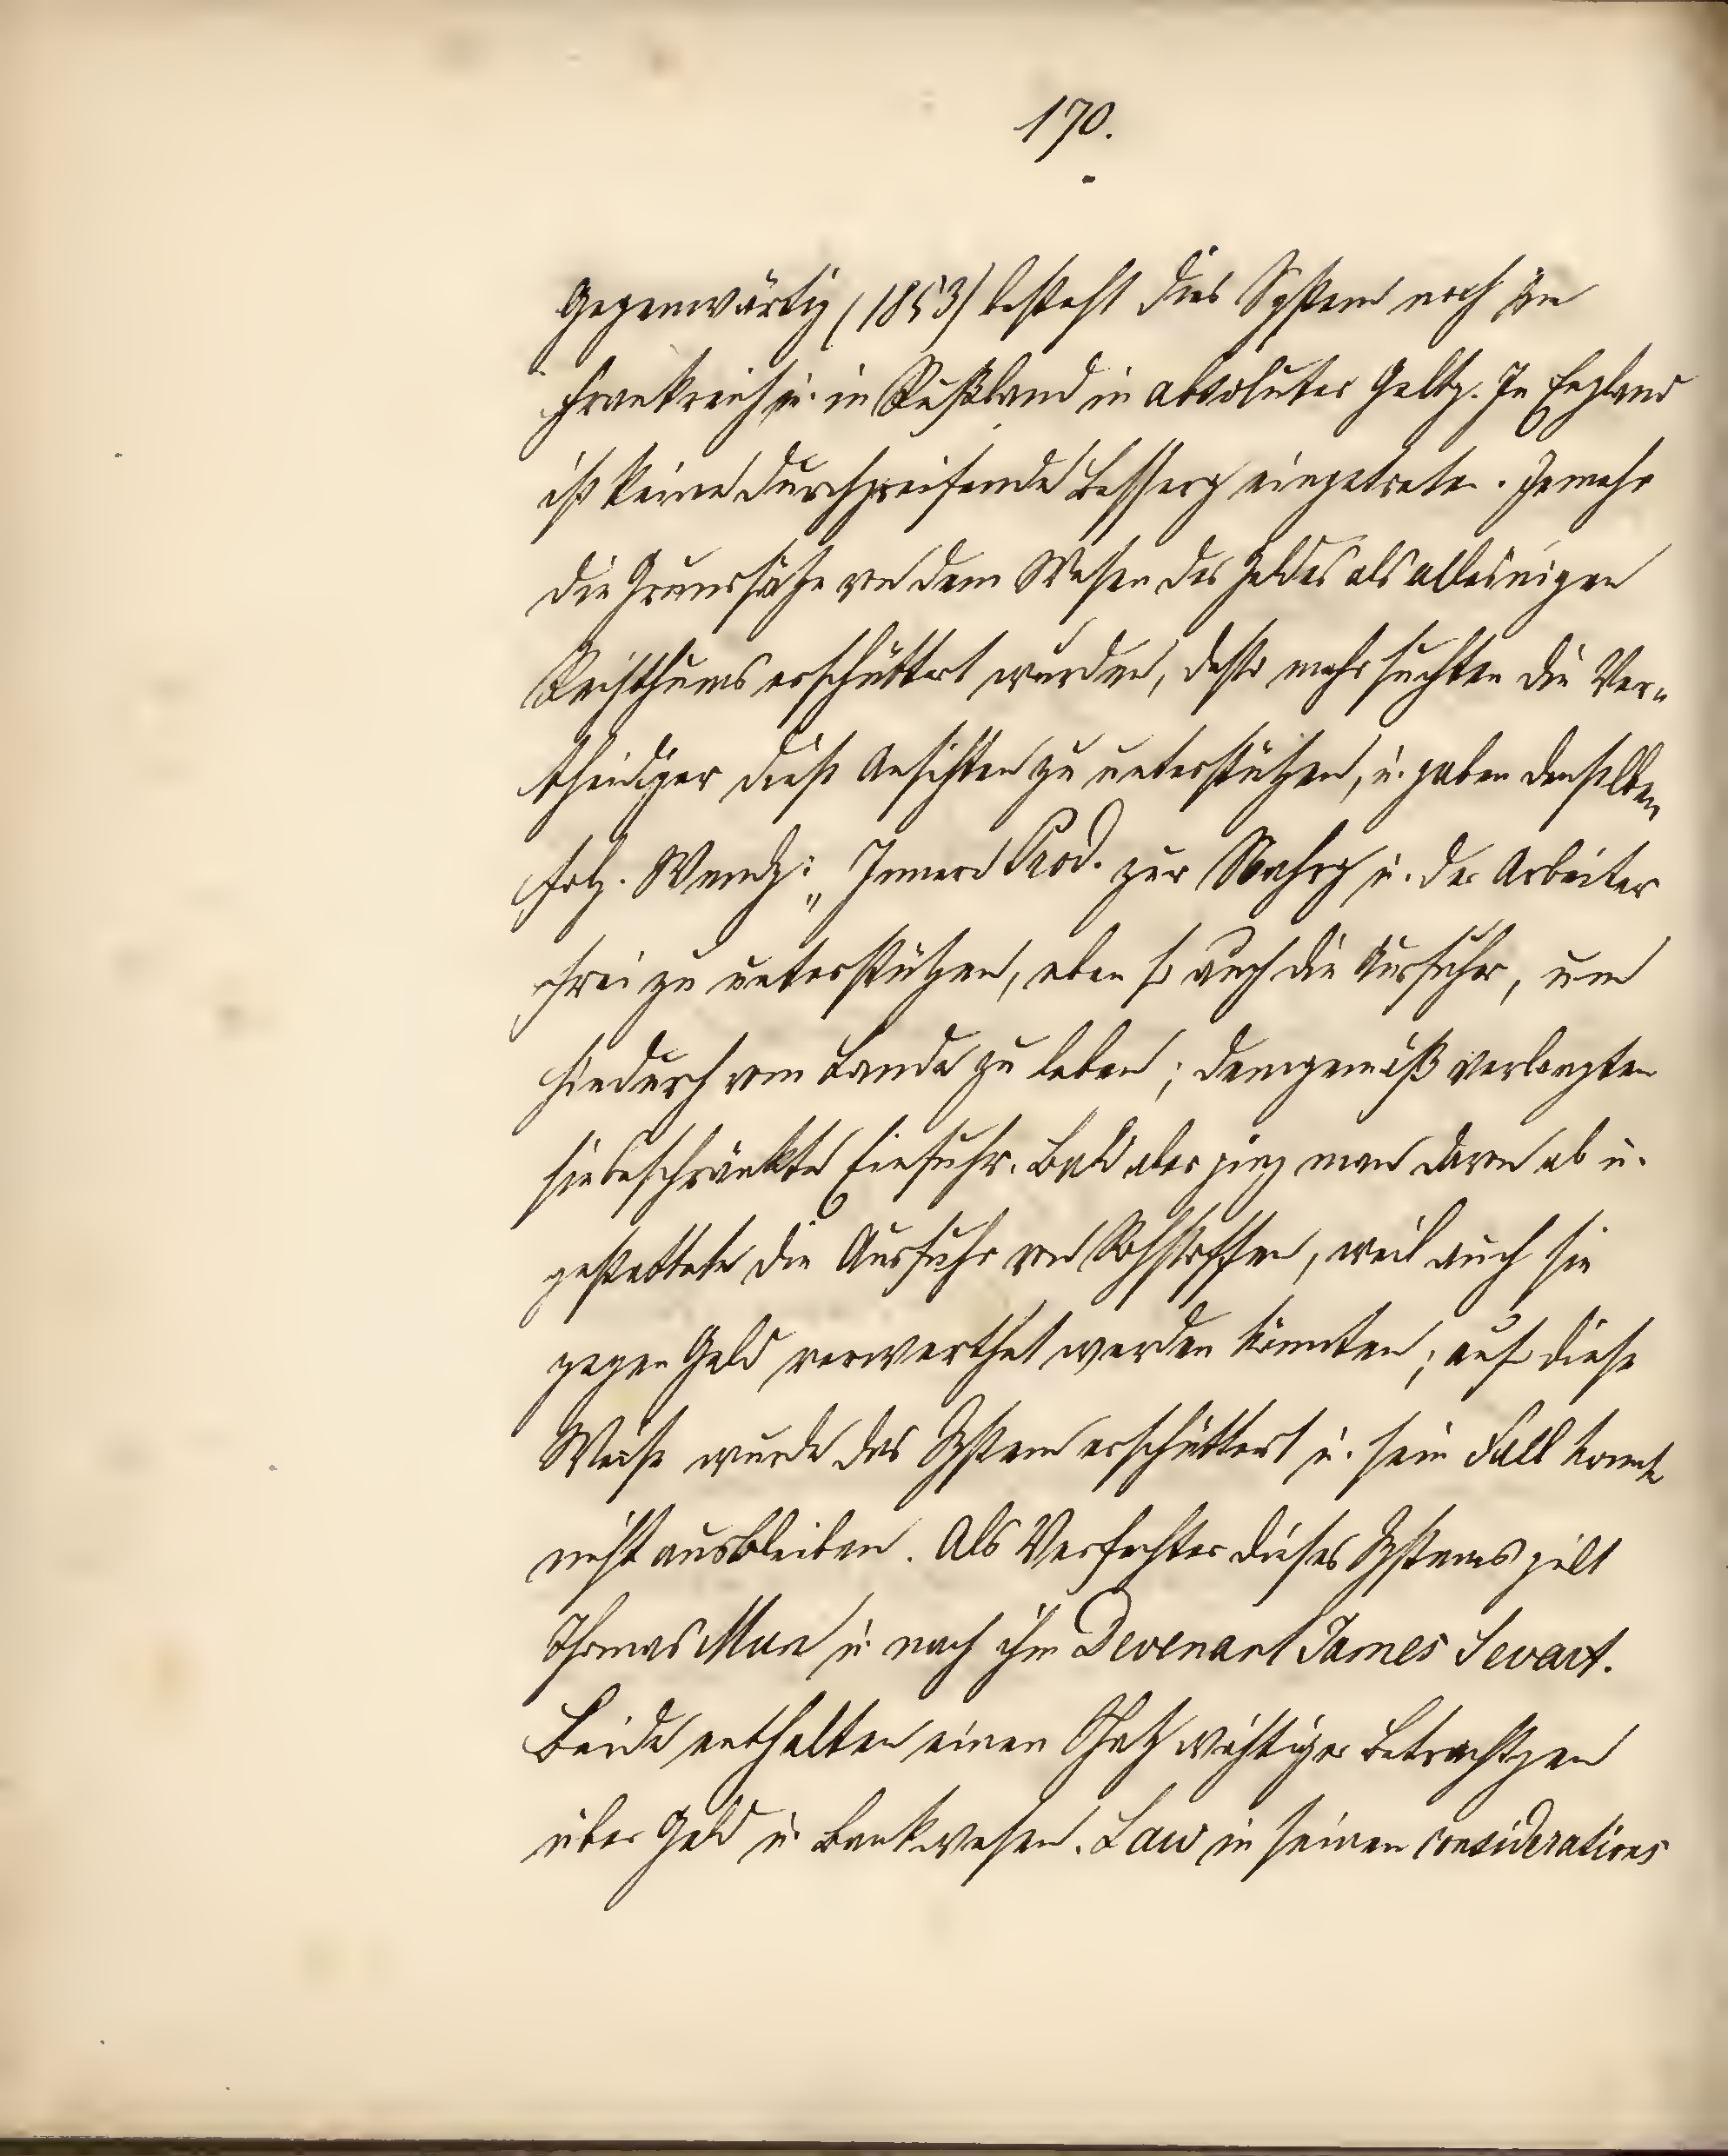 170.
Gegenwärtig (1853) besteht dies System noch in
Frankreich u. in Rußland in absoluter Geltg. In England
ist keine durchgreifende Besserg eingetreten. Jemehr
die Grundsätze von dem Wesen des Geldes als alleinigen
Reichthums erschüttert wurden, desto mehr suchten die Ver-
theidiger diese Ansichten zu unterstützen, u. gaben denselben
folg. Wendg: „Innere Prod. zur Nahrg u. der Arbeiter
frei zu unterstützen, eben so auch die Ausfuhr, um
hiedurch vom Lande zu leben; demgemäß verlangten
sie beschränkte Einfuhr. Bald aber ging man davon ab u.
gestattete die Ausfuhr von Rohstoffen, weil auch sie
gegen Geld verwerthet werden könnten; auf diese
Weise wurde das System erschüttert u. sein Fall konnte
nicht ausbleiben. Als Verfechter dieses Systems gilt
Thomas Mun u. nach ihm Devenant James Sevart.
Beide enthalten einen Schatz wichtiger Betrachtgen
über Geld u. Bankwesen. Law in seinen considerations